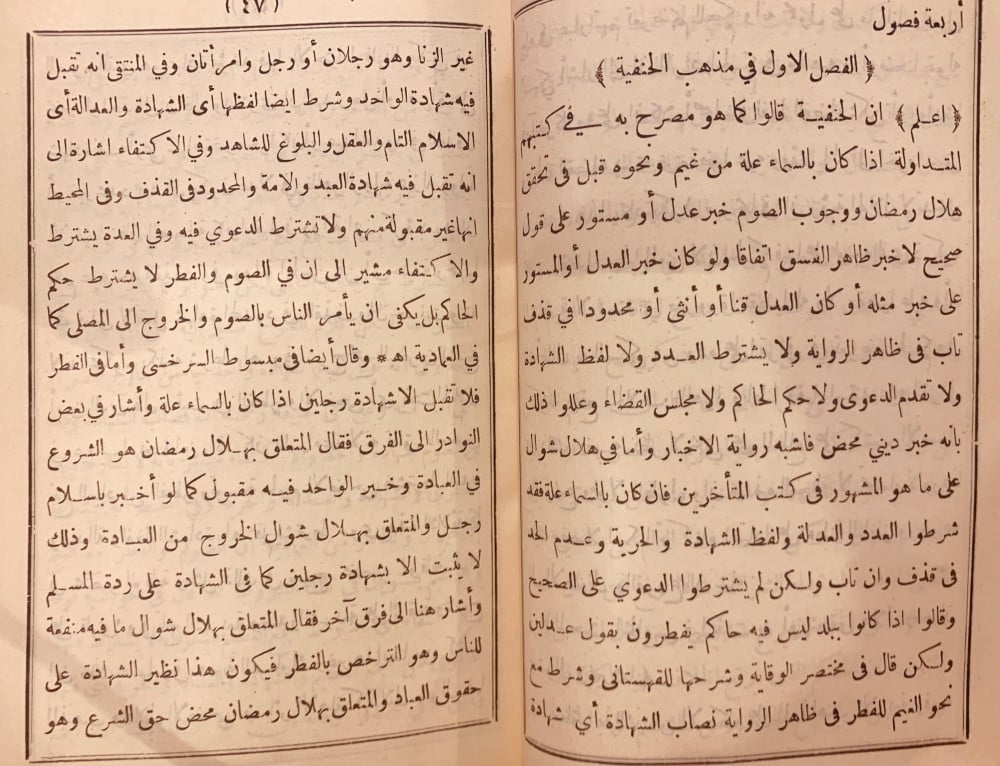 أربعة فصول
﴿ الفصل الاول في مذهب الحنفية ﴾
﴿ اعلم ﴾ ان الحنفية قالوا كما هو مصرح به في كتبهم
المتداولة اذا كان بالسماء علة من غيم ونحوه قبل فى تحقق
هلال رمضان ووجوب الصوم خبر عدل أو مستور على قول
صحيح لا خبر ظاهر الفسق اتفاقا ولو كان خبر العدل أو المستور
على خبر مثله أو كان العدل قنا أو أنثى أو محدودا في قذف
تاب فى ظاهر الرواية ولا يشترط العدد ولا لفظ الشهادة
ولا تقدم الدعوى ولا حكم الحاكم ولا مجلس القضاء وعللوا ذلك
بانه خبر ديني محض فاشبه رواية الاخبار وأما في هلال شوال
على ما هو المشهور فى كتب المتأخرين فان كان بالسماء علة فقد
شرطوا العدد والعدالة ولفظ الشهادة والحرية وعدم الحد
فى قذف وان تاب ولكن لم يشترطوا الدعوي على الصحيح
وقالوا اذا كانوا ببلد ليس فيه حاكم يفطرون بقول عدلين
ولكن قال فى مختصر الوقاية وشرحها للقهستانى وشرط مع
نحو الغيم للفطر فى ظاهر الرواية نصاب الشهادة أي شهادة
(٤٧)
غير الزنا وهو رجلان أو رجل وامرأتان وفي المنتقى انه تقبل
فيه شهادة الواحد وشرط ايضا لفظها أى الشهادة والعدالة أى
الاسلام التام والعقل والبلوغ للشاهد وفي الاكتفاء اشارة الى
انه تقبل فيه شهادة العبد والامة والمحدود فى القذف وفى المحيط
انها غير مقبولة منهم ولا تشترط الدعوي فيه وفي العدة يشترط
والاكتفاء مشير الى ان في الصوم والفطر لا يشترط حكم
الحاكم بل يكفى ان يأمر الناس بالصوم والخروج الى المصلى كما
في العمادية اه * وقال أيضا فى مبسوط السرخسي وأما فى الفطر
فلا تقبل الا شهادة رجلين اذا كان بالسماء علة وأشار في بعض
النوادر الى الفرق فقال المتعلق بهلال رمضان هو الشروع
في العبادة وخبر الواحد فيه مقبول كما لو أخبر باسلام
رجل والمتعلق بهلال شوال الخروج من العبادة وذلك
لا يثبت الا بشهادة رجلين كما فى الشهادة على ردة المسلم
وأشار هنا الى فرق آخر فقال المتعلق بهلال شوال ما فيه منفعة
للناس وهو الترخص بالفطر فيكون هذا نظير الشهادة على
حقوق العباد والمتعلق بهلال رمضان محض حق الشرع وهو